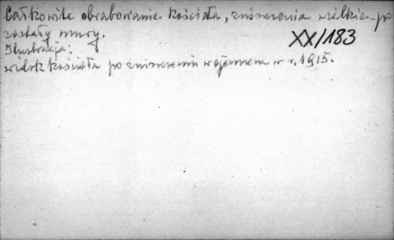 Całkowite obrabowanie kościoła, zniszczenia wielkie - po
zostały mury.
XX/183
Ilustracja:
widok kościoła po zniszczeniu wojennem w r. 1915.